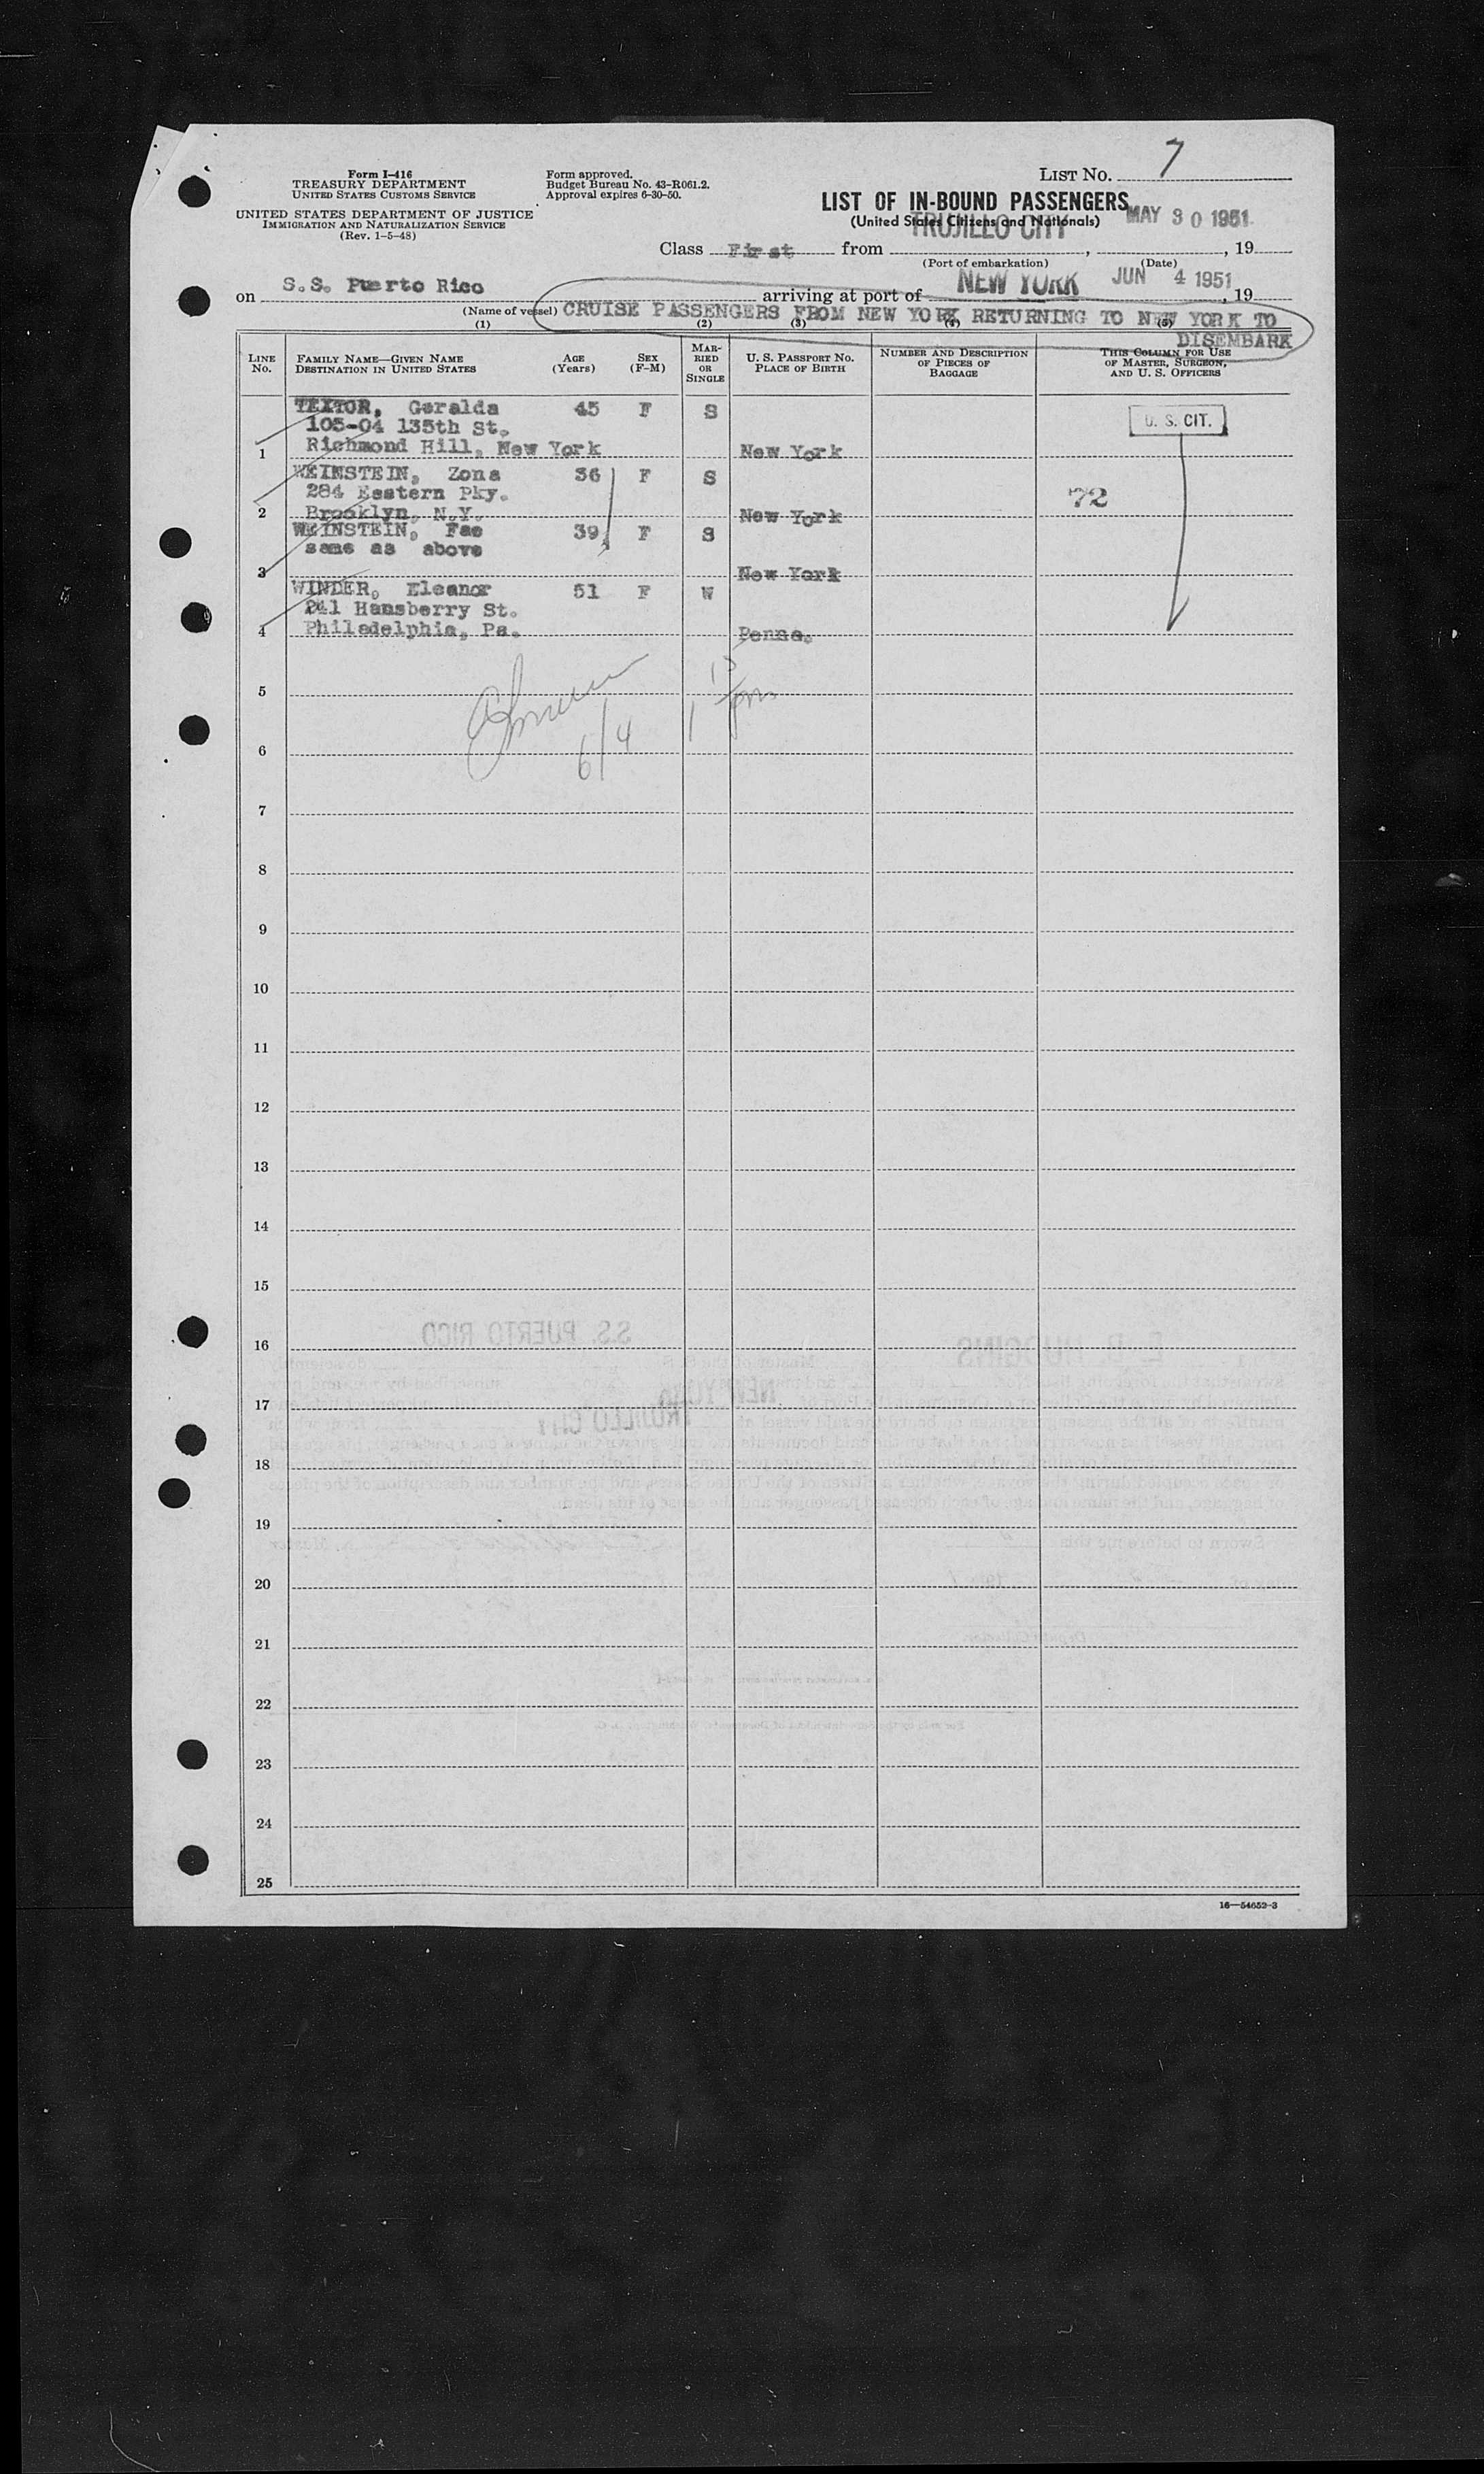 LIST NO. 7
Form I-416
TREASURY DEPARTMENT
UNITED STATES CUSTOMS SERVICE
UNITED STATES DEPARTMENT OF JUSTICE
IMMIGRATION AND NATURALIZATION SERVICE
(Rev. 1-5-48)
Form approved.
Budget Bureau No. 43-R061.2.
Approval expires 6-30-50.
LIST OF IN-BOUND PASSENGERS
(United States Citizens and Nationals)
Class First from TRUJILLO CITY, MAY 30 1951, 19
(Port of embarkation) (Date)
on S.S. Puerto Rico arriving at port of NEW YORK JUN 4 1951, 19
(Name of vessel) CRUISE PASSENGERS FROM NEW YORK RETURNING TO NEW YORK TO
DISEMBARK
(1) (2) (3) (4) (5)
LINE No. FAMILY NAME—GIVEN NAME DESTINATION IN UNITED STATES AGE (Years) SEX (F-M) MARRIED OR SINGLE U. S. PASSPORT NO. PLACE OF BIRTH NUMBER AND DESCRIPTION OF PIECES OF BAGGAGE THIS COLUMN FOR USE OF MASTER, SURGEON, AND U. S. OFFICERS
TEXTOR, Geralda 45 F S U. S. CIT.
105-04 135th St.
1 Richmond Hill, New York New York
WEINSTEIN, Zona 36 F S
284 Eastern Pky. 72
2 Brooklyn, N.Y. New York
WEINSTEIN, Fae 39 F S
same as above
3 New York
WINDER, Eleanor 51 F W
241 Hansberry St.
4 Philadelphia, Pa. Penna.
5
6/4
6
7
8
9
10
11
12
13
14
15
16
17
18
19
20
21
22
23
24
25
16—54652-3